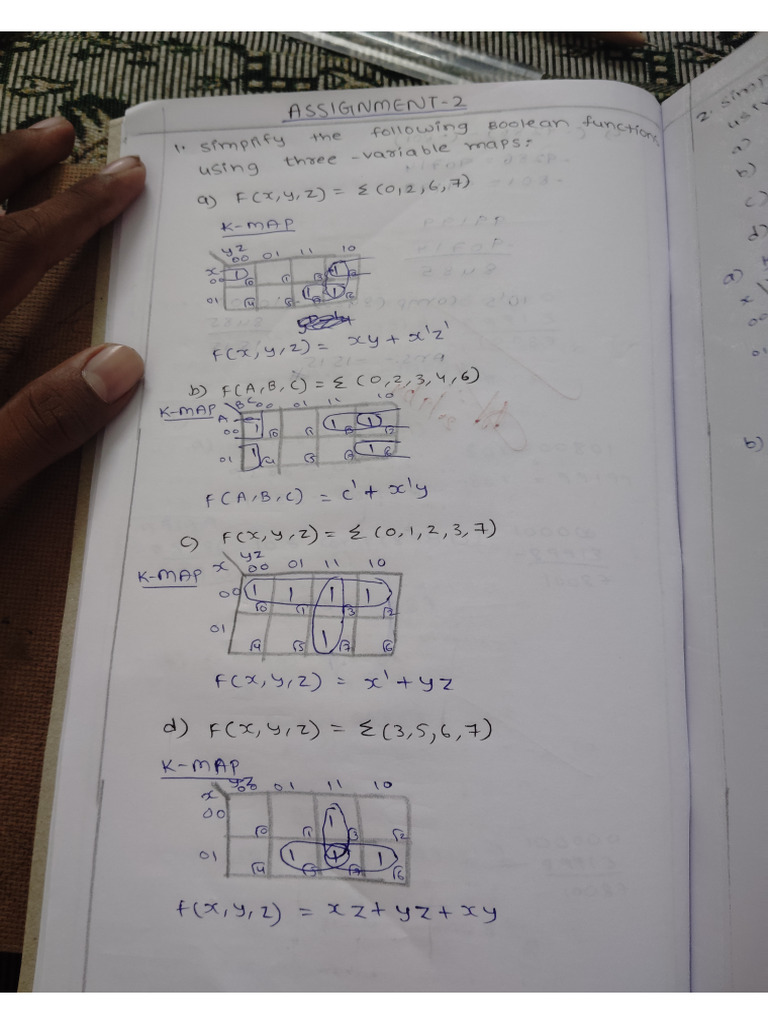 ASSIGNMENT-2
1. Simplify the following Boolean functions
using three-variable maps:
a) F(x,y,z) = Σ(0,2,6,7)
K-MAP
yz
00 01 11 10
x
00 1 0 1 3 1 2
01 4 5 1 7 1 6
F(x,y,z) = xy + x'z'
b) F(A,B,C) = Σ(0,2,3,4,6)
K-MAP
BC 00 01 11 10
A
00 1 0 1 1 3 1 2
01 1 4 5 7 1 6
F(A,B,C) = c' + x'y
c) F(x,y,z) = Σ(0,1,2,3,7)
K-MAP
x yz
00 01 11 10
00 1 0 1 1 1 3 1 2
01 4 5 1 7 6
F(x,y,z) = x' + yz
d) F(x,y,z) = Σ(3,5,6,7)
K-MAP
yz
x 00 01 11 10
00 0 1 1 3 2
01 4 1 5 1 7 1 6
F(x,y,z) = xz + yz + xy
2. Simp
usi
a)
b)
c)
d)
a)
x
00
01
b)